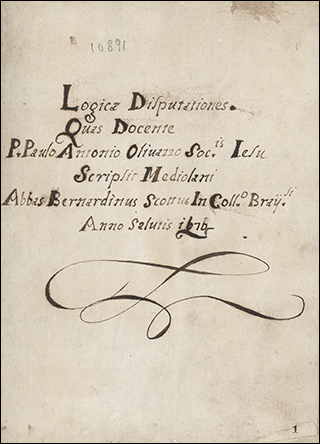 10891
Logicæ Disputationes.
Quas Docente
P. Paulo Antonio Olivazzo Soc.is Iesu
Scripsit Mediolani
Abbas Bernardinus Scottus In Coll.o Brayd.si
Anno Salutis 1674
1